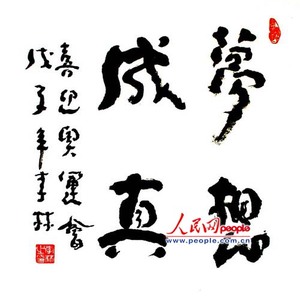 夢想
成真
喜迎奥運會
戊子年李林
人民网
people
www.people.com.cn